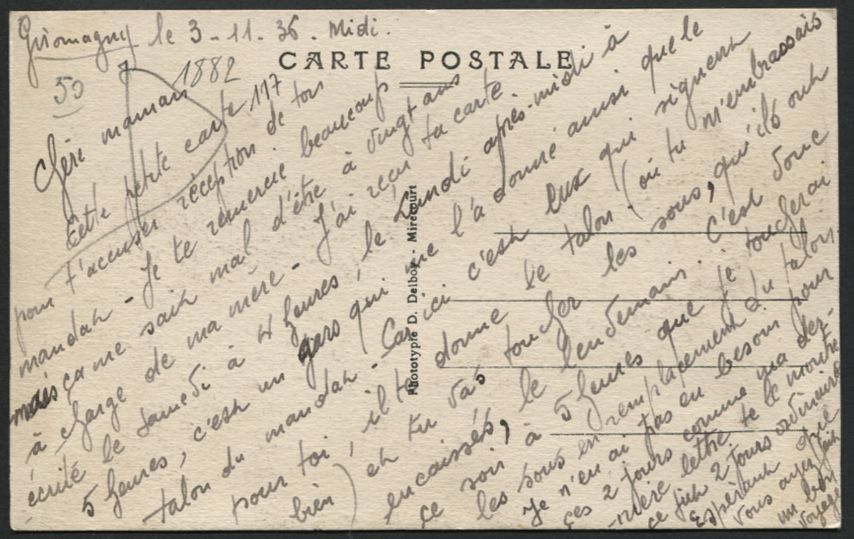 Giromagny le 3-11-36. Midi.
CARTE POSTALE
50
1882
117
Chère maman
Cette petite carte
pour t'accuser réception de ton
mandat - Je te remercie beaucoup
mais ça me fait mal d'être à vingt ans
à charge de ma mère - J'ai reçu ta carte
écrite le Samedi à 4 heures, le Lundi après-midi à
5 heures, c'est un gars qui me l'a donné ainsi que le
talon du mandat - Car ici c'est eux qui signent
pour toi, il te donne le talon (où tu m'embrassais
bien) et tu vas toucher les sous, qu'ils ont
encaissés, le lendemain. C'est donc
ce soir à 5 heures que je toucherai
les sous en remplacement du talon.
Je n'en ai pas eu besoin pour
ces 2 jours comme ma der-
nière lettre te le montre
ce fut 2 jours ordinaires
Espérant que
vous ayez fait
un bon
voyage
Phototypie D. Delboy - Mirecourt